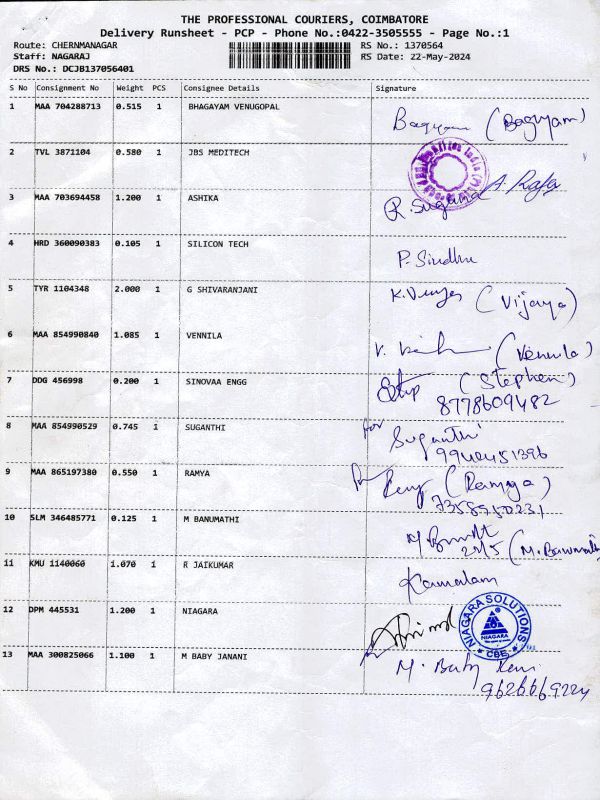 THE PROFESSIONAL COURIERS, COIMBATORE
Delivery Runsheet - PCP - Phone No.:0422-3505555 - Page No.:1
Route: CHERNMANAGAR RS No.: 1370564
Staff: NAGARAJ RS Date: 22-May-2024
DRS No.: DCJB137056401
S No Consignment No Weight PCS Consignee Details Signature
1 MAA 704288713 0.515 1 BHAGAYAM VENUGOPAL (Bagyam)
2 TVL 3871104 0.580 1 JBS MEDITECH
3 MAA 703694458 1.200 1 ASHIKA R. Suguna
4 HRD 360090383 0.105 1 SILICON TECH P. Sindhu
5 TYR 1104348 2.000 1 G SHIVARANJANI (Vijaya)
6 MAA 854990840 1.085 1 VENNILA (Vennila)
7 DDG 456998 0.200 1 SINOVAA ENGG (Stephen)
8778609482
8 MAA 854990529 0.745 1 SUGANTHI for Suganthi
9940451396
9 MAA 865197380 0.550 1 RAMYA (Ramya)
7358950231
10 SLM 346485771 0.125 1 M BANUMATHI
22/5
11 KMU 1140060 1.070 1 R JAIKUMAR Kamalam
12 DPM 445531 1.200 1 NIAGARA
NIAGARA SOLUTIONS
NIAGARA
CBE
13 MAA 300825066 1.100 1 M BABY JANANI M. Baby
9626669224